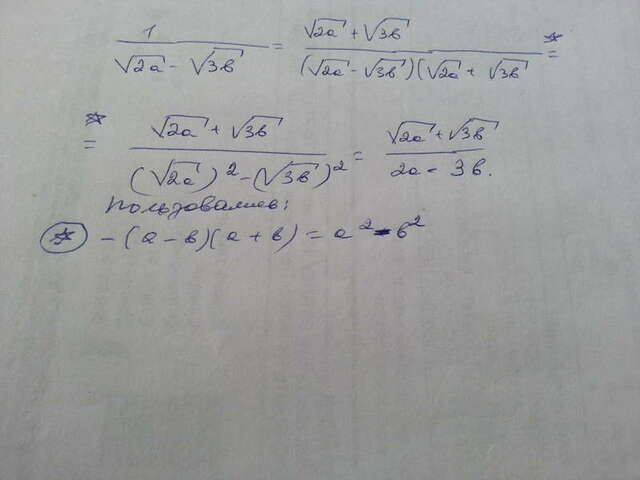 1/(√2a - √3в) = (√2a + √3в)/((√2a - √3в)(√2a + √3в) *=
*= (√2a + √3в)/((√2a)² - (√3в)²) = (√2a + √3в)/(2a - 3в.)
Пользовались:
* - (a - в)(a + в) = a² - в²